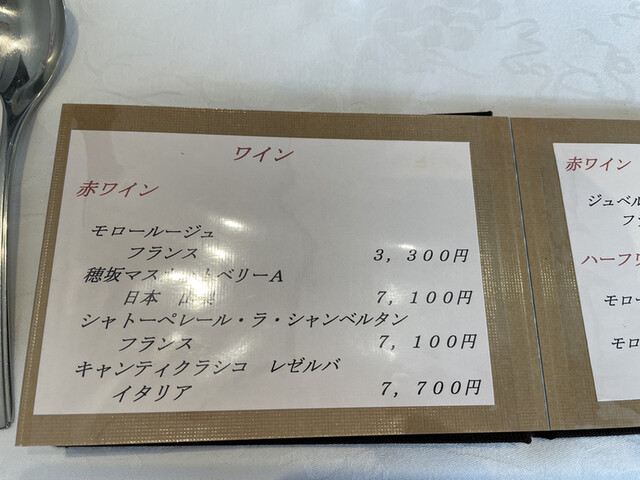 ワイン
赤ワイン
モロールージュ
フランス 3,300円
穂坂マスカットベリーA
日本 7,100円
シャトーペレール・ラ・シャンベルタン
フランス 7,100円
キャンティクラシコ レゼルバ
イタリア 7,700円
赤ワイン
ジュベル
フ
ハーフワ
モロー
モロ